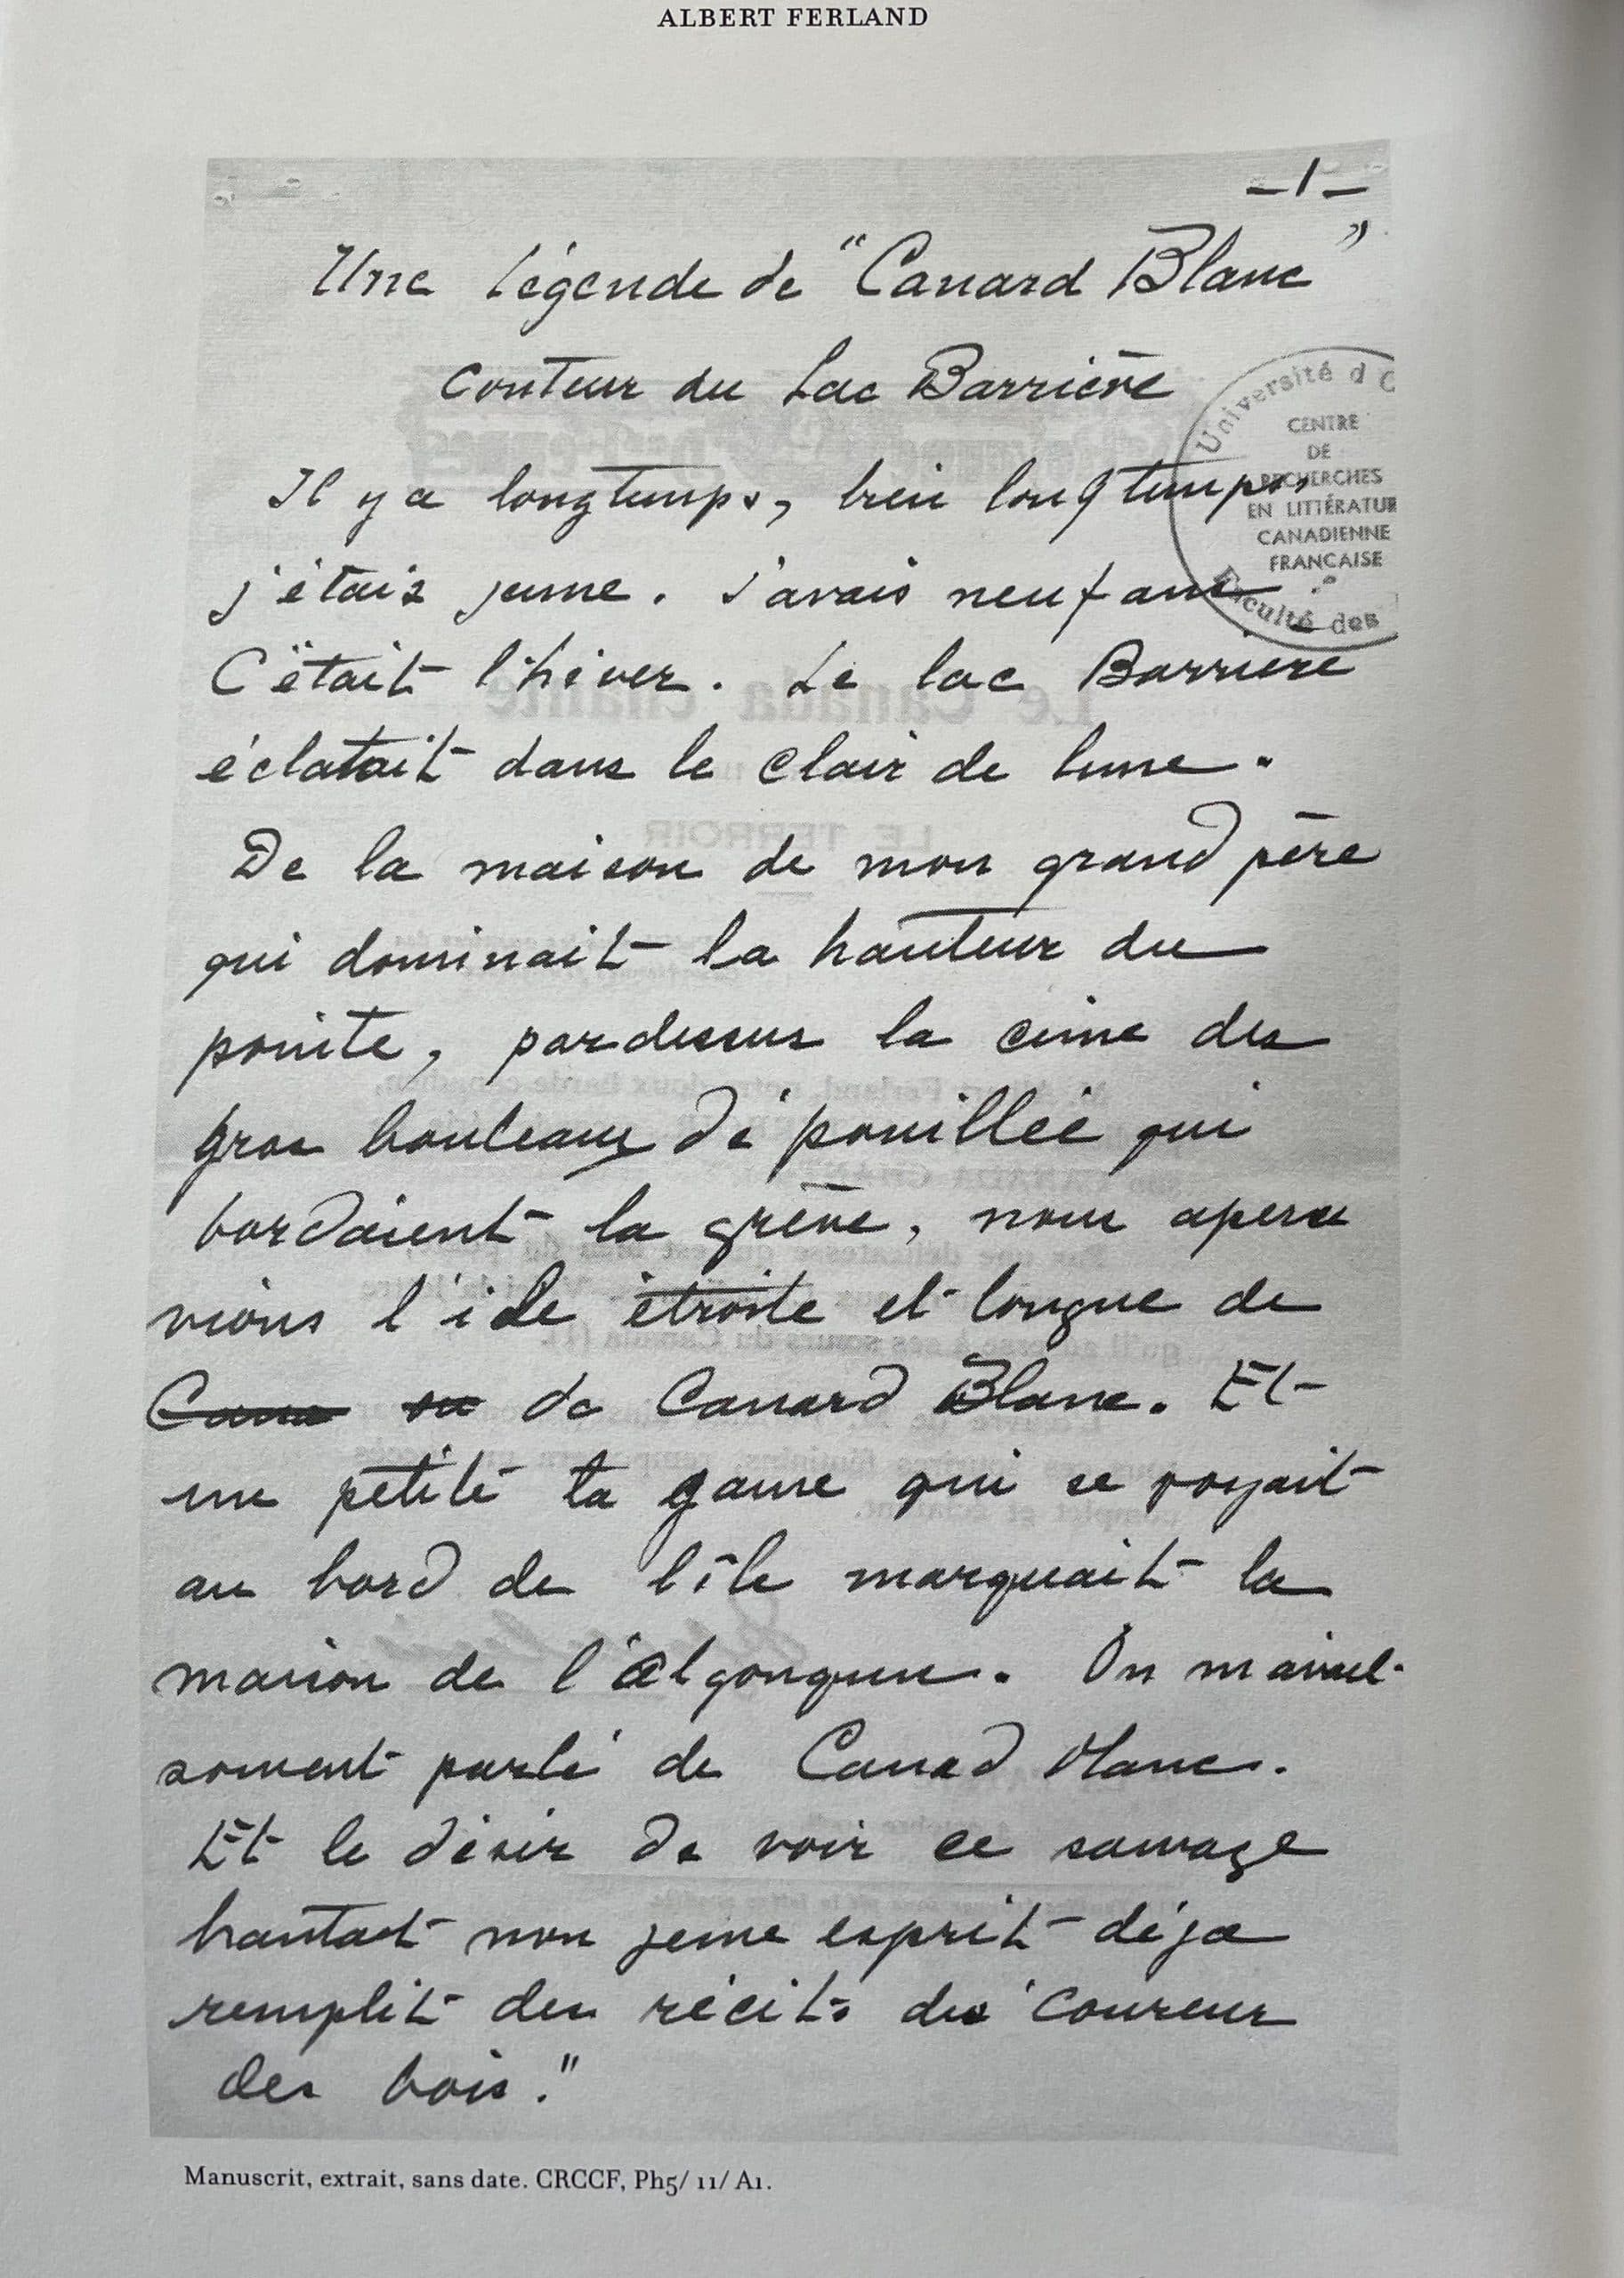 ALBERT FERLAND
-1-
Une Légende de "Canard Blanc"
Conteur du Lac Barrière
Il y a longtemps, bien longtemps,
j'étais jeune. J'avais neuf ans.
C'était l'hiver. Le lac Barrière
éclatait dans le clair de lune.
De la maison de mon grand père
qui dominait la hauteur du
pointe, par dessus la cime des
gros bouleaux dépouillée qui
bordaient la grève, nous aperce
vions l'ile étroite et longue de
de Canard Blanc. Et
une petite ta gaune qui se voyait
au bord de l'île marquait la
maison de l'algonquin. On m'avait
souvent parlé de Canard blanc.
Et le désir de voir ce sauvage
hantait mon jeune esprit déja
remplit des récits des coureur
des bois."
Université d O
CENTRE
DE
RECHERCHES
EN LITTÉRATUR
CANADIENNE
FRANCAISE
Faculté des
Manuscrit, extrait, sans date. CRCCF, Ph5/ 11/ A1.